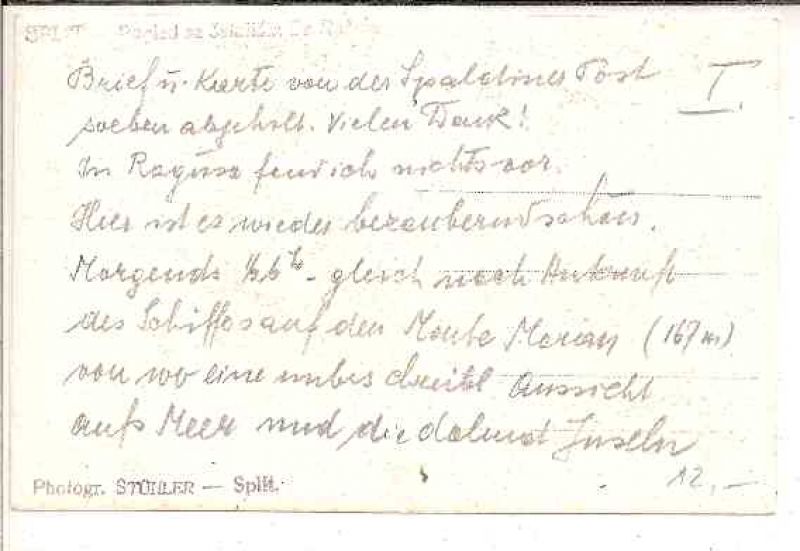 SPLIT — Pogled sa
Brief u. Karte von der Spalatiner Post
I.
soeben abgeholt. Vielen Dank!
In Ragusa fand ich nichts vor.
Hier ist es wieder bezaubernd schön.
Morgends ½6 h - gleich nach Ankunft
des Schiffes auf den Monte Marian (167 m)
von wo eine unbeschreibl Aussicht
aufs Meer und die dalmat Inseln
12,—
Photogr. STÜHLER — Split.